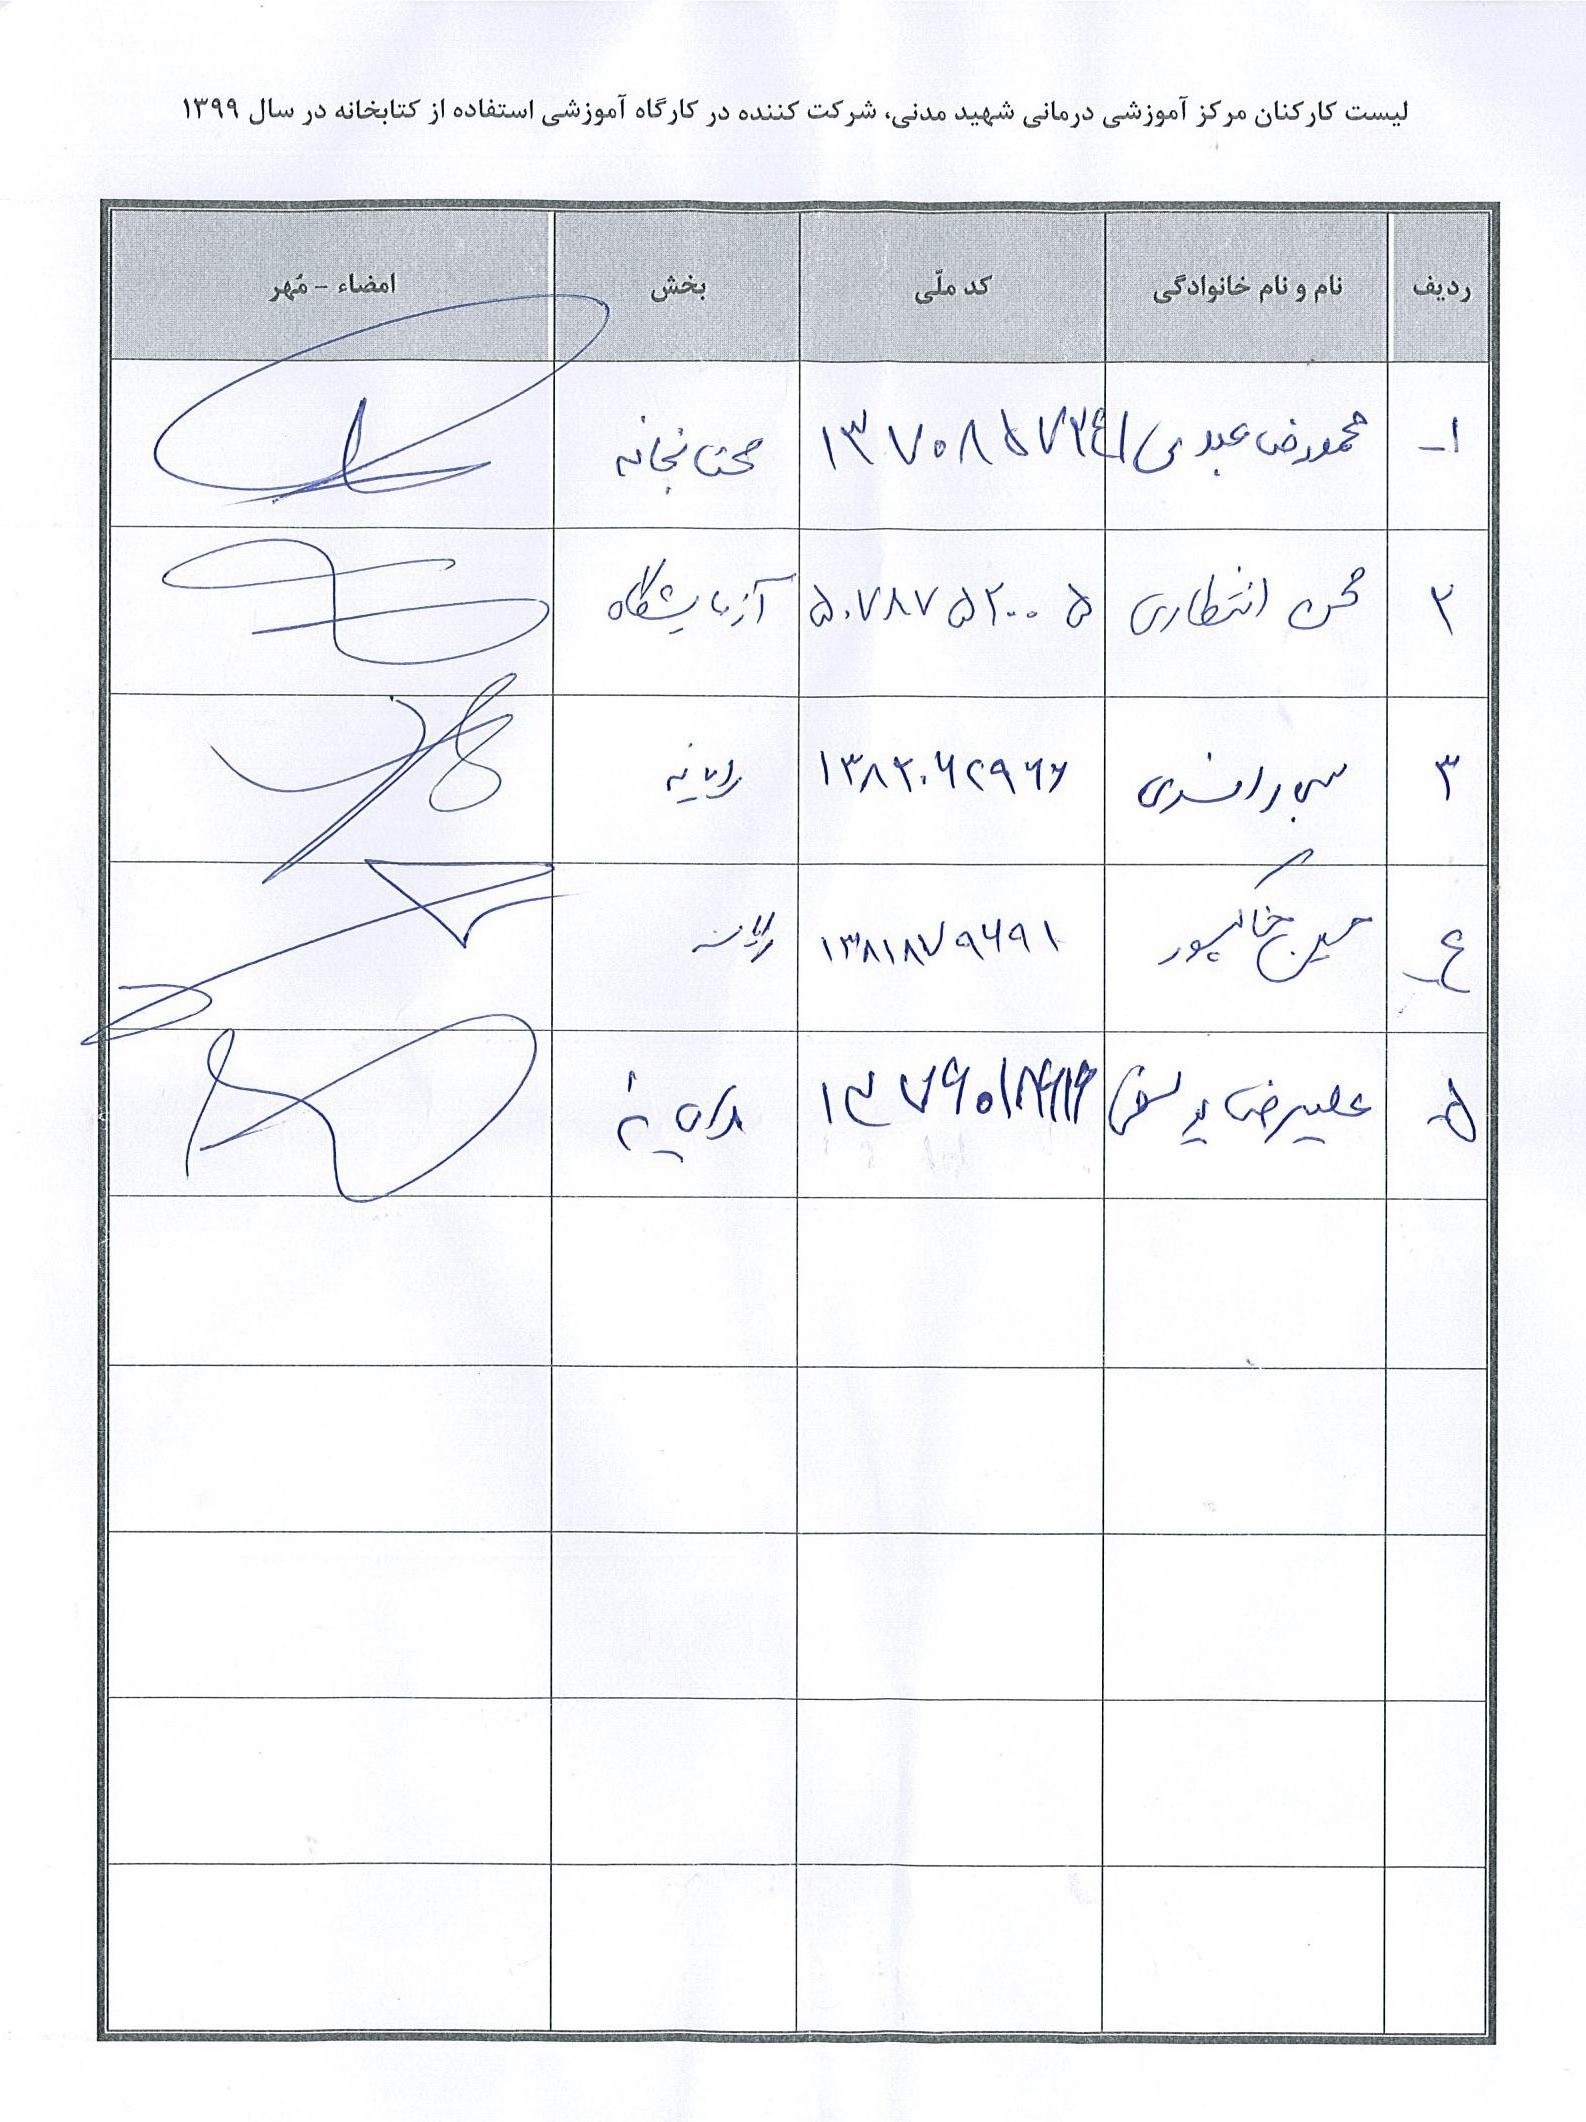 لیست کارکنان مرکز آموزشی درمانی شهید مدنی، شرکت کننده در کارگاه آموزشی استفاده از کتابخانه در سال ۱۳۹۹
ردیف نام و نام خانوادگی کد ملّی بخش امضاء - مُهر
۱- محمودرضا عبدی ۱۳۷۰۸۵۷۳۴۱ کتابخانه
۲ محسن انتظاری ۵۰۷۸۷۵۲۰۰۵ آزمایشگاه
۳ ۱۳۸۲۰۶۲۹۶۶ رایانه
۴- حسین خاکپور ۱۳۸۱۸۷۹۶۹۱ رایانه
۵- علیرضا رایانه